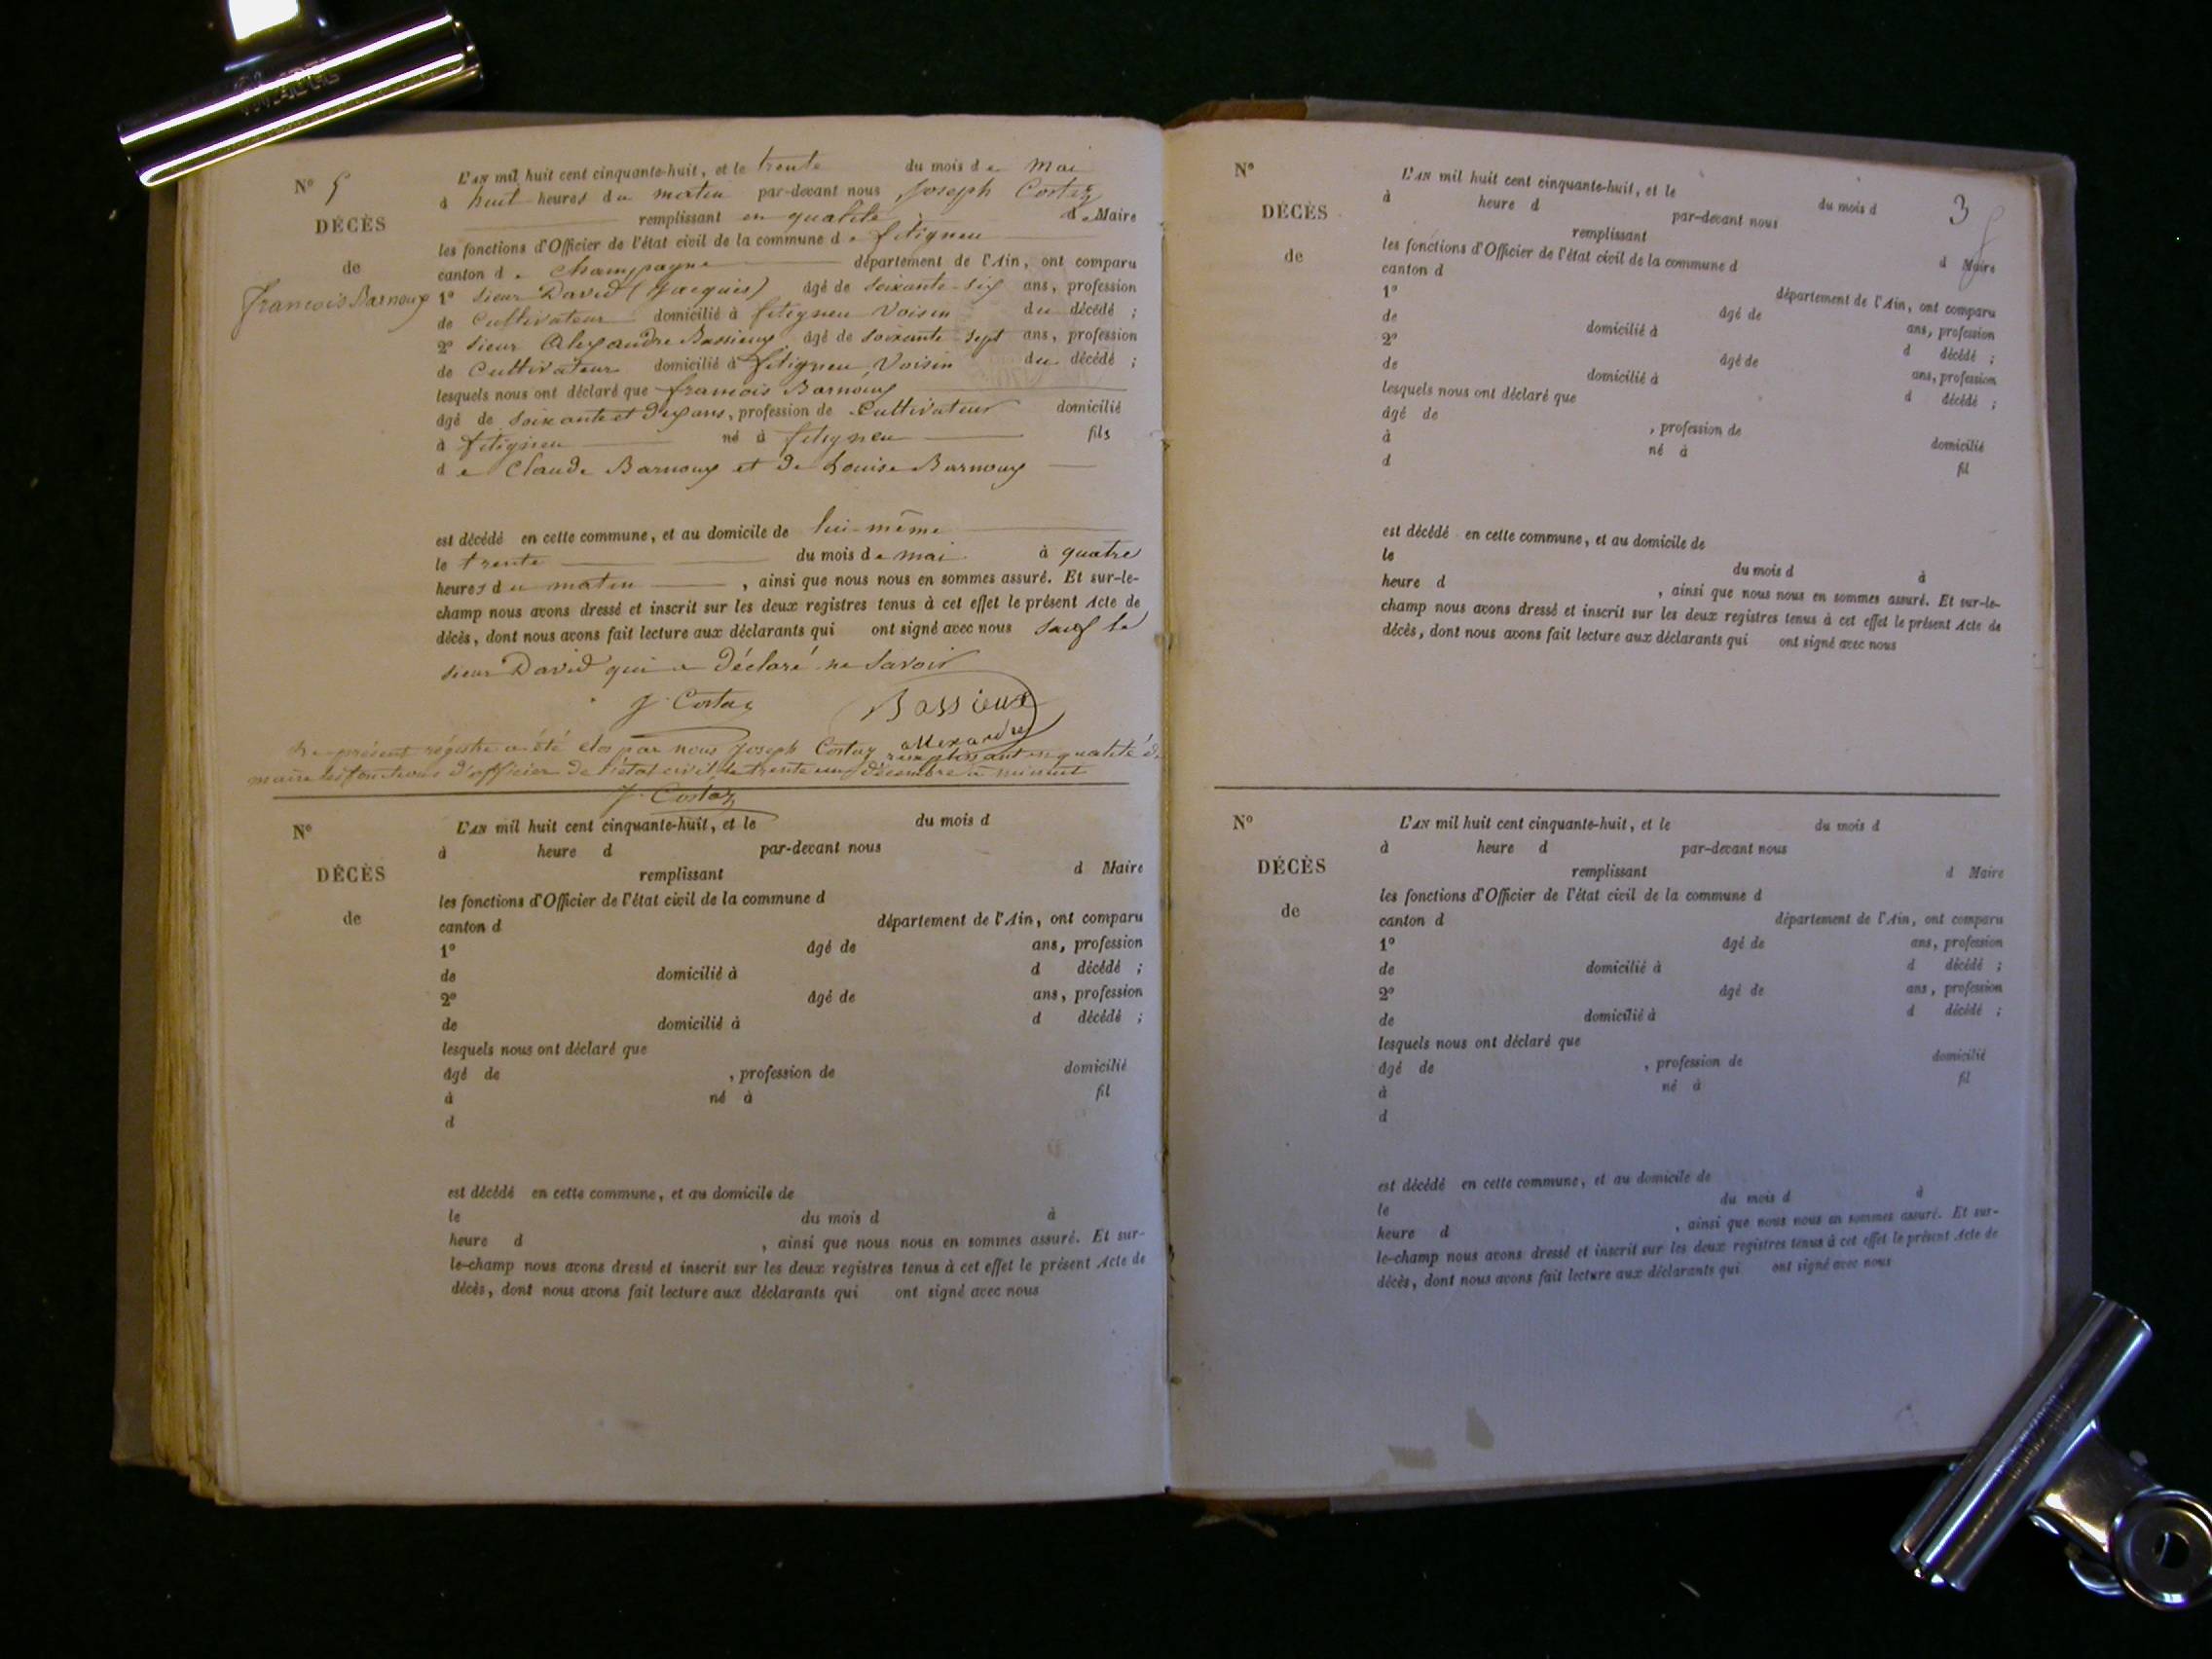 N° 5
DÉCÈS
de
francois Barnoux
L'AN mil huit cent cinquante-huit, et le trente du mois de mai
à huit heures du matin par-devant nous Joseph Costaz
remplissant en qualité de Maire
les fonctions d'Officier de l'état civil de la commune de fitignieu
canton de Champagne département de l'Ain, ont comparu
1° sieur David (Jacques) âgé de soixante-six ans, profession
de Cultivateur domicilié à fitignieu Voisin du décédé ;
2° sieur Alexandre Bassieux âgé de soixante-sept ans, profession
de Cultivateur domicilié à fitignieu Voisin du décédé ;
lesquels nous ont déclaré que francois Barnoux
âgé de soixante et dix ans, profession de Cultivateur domicilié
à fitignieu né à fitignieu fils
de Claude Barnoux et de Louise Barnoux
est décédé en cette commune, et au domicile de lui-même
le trente du mois de mai à quatre
heures du matin , ainsi que nous nous en sommes assuré. Et sur-le-
champ nous avons dressé et inscrit sur les deux registres tenus à cet effet le présent Acte de
décès, dont nous avons fait lecture aux déclarants qui ont signé avec nous sauf le
sieur David qui a déclaré ne savoir
J. Costaz Bassieux
allexandre
Le présent régistre a été clos par nous Joseph Costaz remplissant en qualité de
maire les fonctions d'officier de l'état civil le trente un décembre à minuit
J. Costaz
N°
DÉCÈS
de
L'AN mil huit cent cinquante-huit, et le du mois d
à heure d par-devant nous
remplissant d Maire
les fonctions d'Officier de l'état civil de la commune d
canton d département de l'Ain, ont comparu
1° âgé de ans, profession
de domicilié à d décédé ;
2° âgé de ans, profession
de domicilié à d décédé ;
lesquels nous ont déclaré que
âgé de , profession de domicilié
à né à fil
d
est décédé en cette commune, et au domicile de
le du mois d à
heure d , ainsi que nous nous en sommes assuré. Et sur-
le-champ nous avons dressé et inscrit sur les deux registres tenus à cet effet le présent Acte de
décès, dont nous avons fait lecture aux déclarants qui ont signé avec nous
3
N°
DÉCÈS
de
L'AN mil huit cent cinquante-huit, et le du mois d
à heure d par-devant nous
remplissant d Maire
les fonctions d'Officier de l'état civil de la commune d
canton d département de l'Ain, ont comparu
1° âgé de ans, profession
de domicilié à d décédé ;
2° âgé de ans, profession
de domicilié à d décédé ;
lesquels nous ont déclaré que
âgé de , profession de domicilié
à né à fil
d
est décédé en cette commune, et au domicile de
le du mois d à
heure d , ainsi que nous nous en sommes assuré. Et sur-le-
champ nous avons dressé et inscrit sur les deux registres tenus à cet effet le présent Acte de
décès, dont nous avons fait lecture aux déclarants qui ont signé avec nous
N°
DÉCÈS
de
L'AN mil huit cent cinquante-huit, et le du mois d
à heure d par-devant nous
remplissant d Maire
les fonctions d'Officier de l'état civil de la commune d
canton d département de l'Ain, ont comparu
1° âgé de ans, profession
de domicilié à d décédé ;
2° âgé de ans, profession
de domicilié à d décédé ;
lesquels nous ont déclaré que
âgé de , profession de domicilié
à né à fil
d
est décédé en cette commune, et au domicile de
le du mois d à
heure d , ainsi que nous nous en sommes assuré. Et sur-
le-champ nous avons dressé et inscrit sur les deux registres tenus à cet effet le présent Acte de
décès, dont nous avons fait lecture aux déclarants qui ont signé avec nous